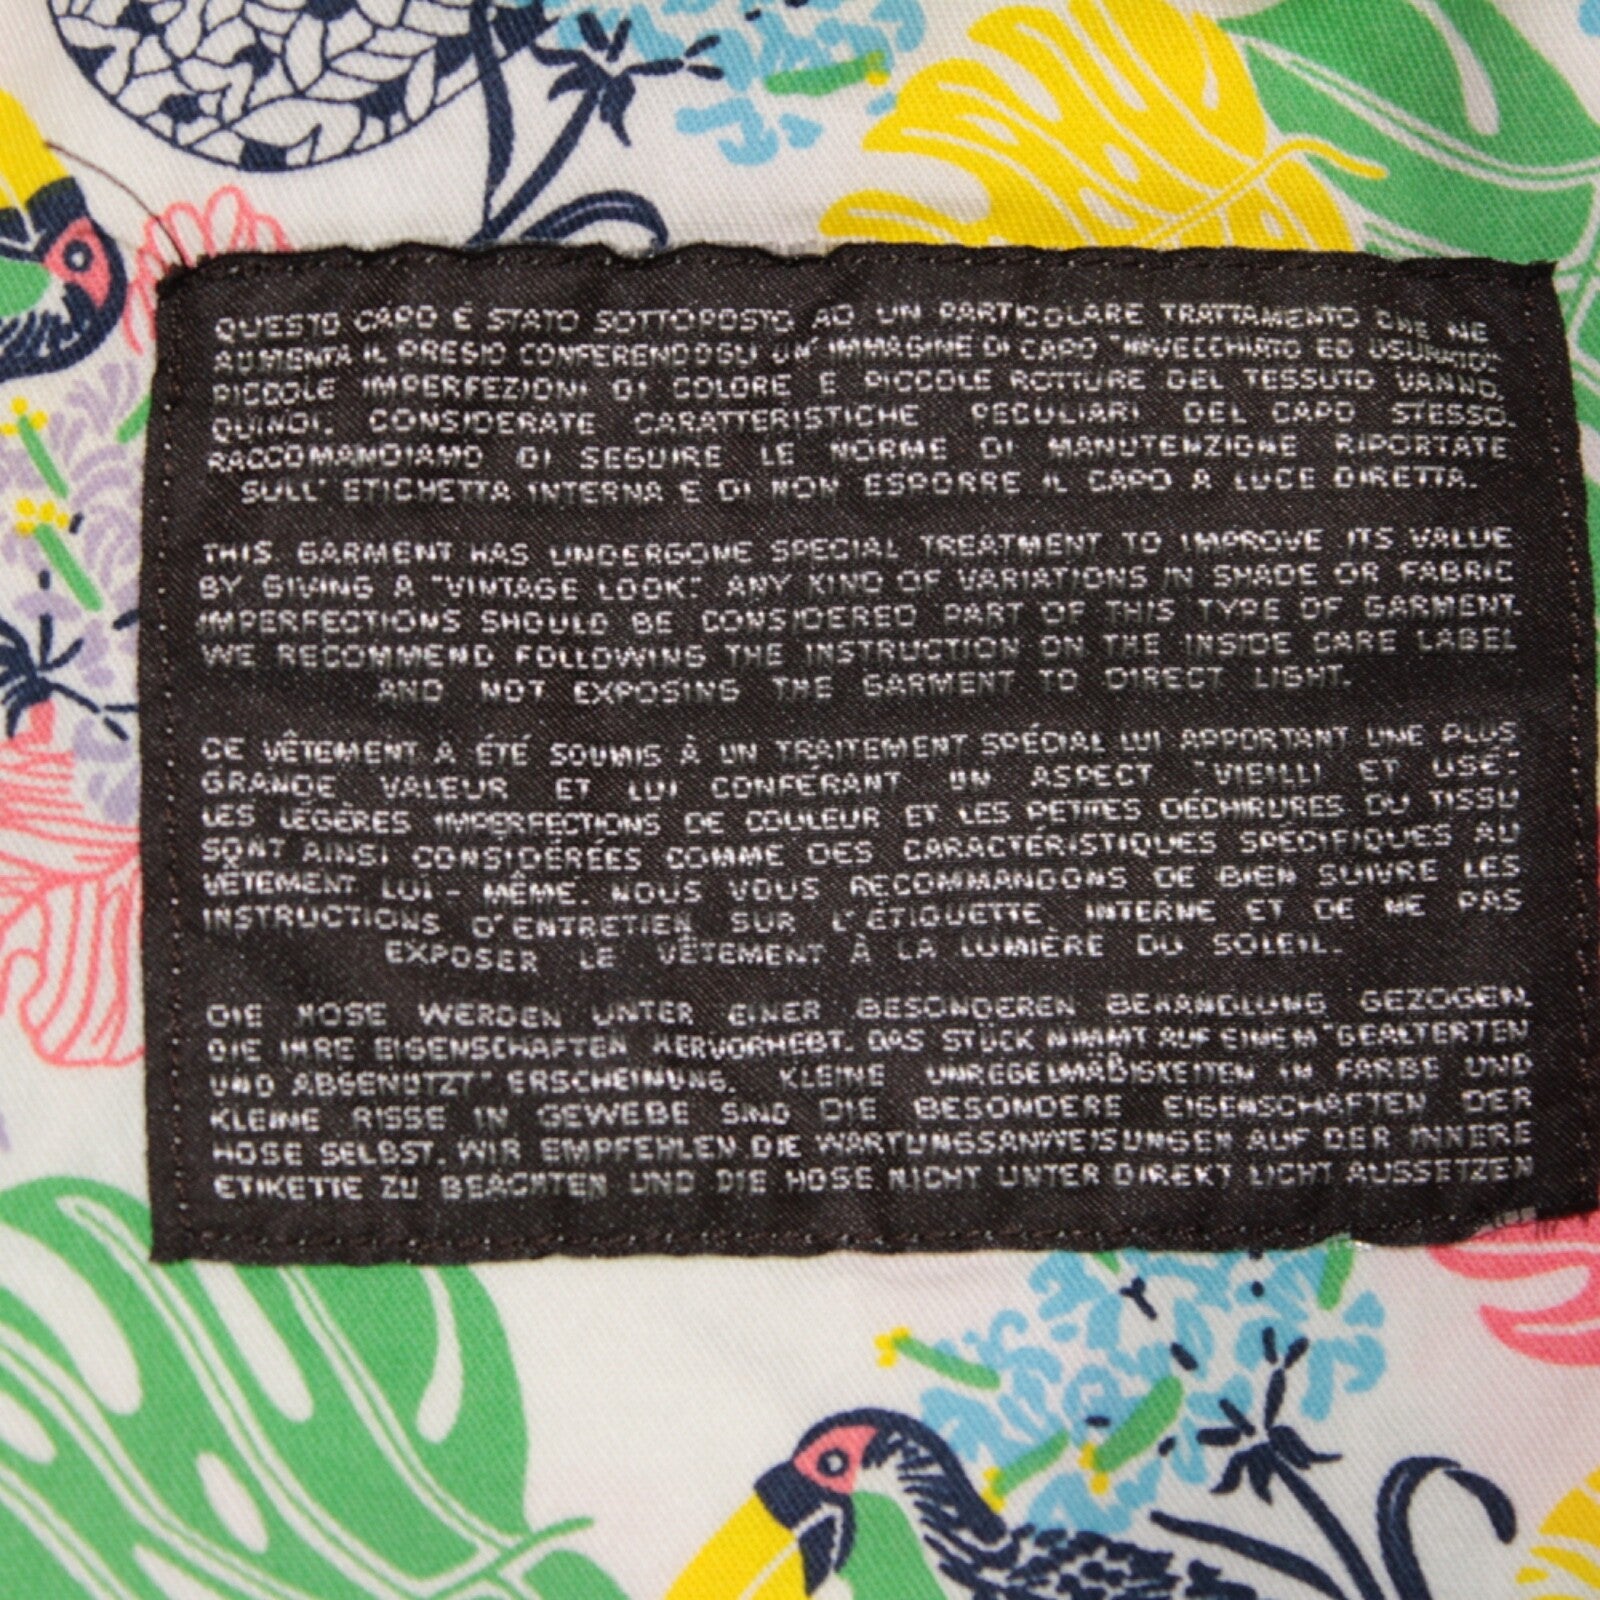 QUESTO CAPO É STATO SOTTOPOSTO AD UN PARTICOLARE TRATTAMENTO CHE NE
AUMENTA IL PREGIO CONFERENDOGLI UN' IMMAGINE DI CAPO "INVECCHIATO ED USURATO".
PICCOLE IMPERFEZIONI DI COLORE E PICCOLE ROTTURE DEL TESSUTO VANNO,
QUINDI, CONSIDERATE CARATTERISTICHE PECULIARI DEL CAPO STESSO.
RACCOMANDIAMO DI SEGUIRE LE NORME DI MANUTENZIONE RIPORTATE
SULL' ETICHETTA INTERNA E DI NON ESPORRE IL CAPO A LUCE DIRETTA.
THIS GARMENT HAS UNDERGONE SPECIAL TREATMENT TO IMPROVE ITS VALUE
BY GIVING A "VINTAGE LOOK". ANY KIND OF VARIATIONS IN SHADE OR FABRIC
IMPERFECTIONS SHOULD BE CONSIDERED PART OF THIS TYPE OF GARMENT.
WE RECOMMEND FOLLOWING THE INSTRUCTION ON THE INSIDE CARE LABEL
AND NOT EXPOSING THE GARMENT TO DIRECT LIGHT.
CE VÊTEMENT A ÉTÉ SOUMIS À UN TRAITEMENT SPÉCIAL LUI APPORTANT UNE PLUS
GRANDE VALEUR ET LUI CONFERANT UN ASPECT "VIEILLI ET USÉ".
LES LÉGÈRES IMPERFECTIONS DE COULEUR ET LES PETITES DÉCHIRURES DU TISSU
SONT AINSI CONSIDÉRÉES COMME DES CARACTÉRISTIQUES SPÉCIFIQUES AU
VÊTEMENT LUI - MÊME. NOUS VOUS RECOMMANDONS DE BIEN SUIVRE LES
INSTRUCTIONS D'ENTRETIEN SUR L'ÉTIQUETTE INTERNE ET DE NE PAS
EXPOSER LE VÊTEMENT À LA LUMIÈRE DU SOLEIL.
DIE HOSE WERDEN UNTER EINER BESONDEREN BEHANDLUNG GEZOGEN,
DIE IHRE EIGENSCHAFTEN HERVORHEBT. DAS STÜCK NIMMT AUF EINEM "GEALTERTEN
UND ABGENÜTZT" ERSCHEINUNG. KLEINE UNREGELMÄßIGKEITEN IN FARBE UND
KLEINE RISSE IN GEWEBE SIND DIE BESONDERE EIGENSCHAFTEN DER
HOSE SELBST. WIR EMPFEHLEN DIE WARTUNGSANWEISUNGEN AUF DER INNERE
ETIKETTE ZU BEACHTEN UND DIE HOSE NICHT UNTER DIREKT LICHT AUSSETZEN